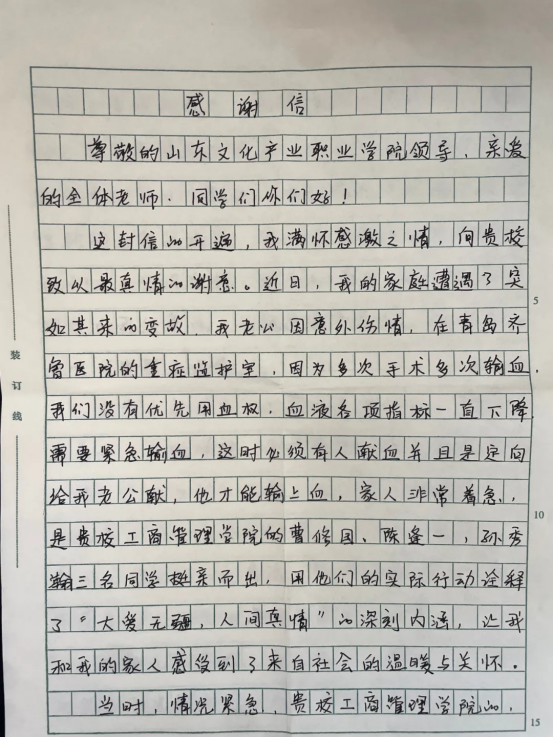 感谢信
尊敬的山东文化产业职业学院领导、亲爱
的全体老师、同学们你们好！
这封信的开遍，我满怀感激之情，向贵校
致以最真情的谢意。近日，我的家庭遭遇了突
如其来的变故，我老公因意外伤情，在青岛齐
鲁医院的重症监护室，因为多次手术多次输血.
我们没有优先用血权，血液各项指标一直下降
需要紧急输血，这时必须有人献血并且是定向
给我老公献，他才能输上血，家人非常着急，
是贵校工商管理学院的曹修国、陈逢一，孙秀
瀚三名同学挺亲而出，用他们的实际行动诠释
了“大爱无疆，人间真情”的深刻内涵，让我
和我的家人感受到了来自社会的温暖与关怀。
当时，情况紧急，贵校工商管理学院的，
装订线
5
10
15